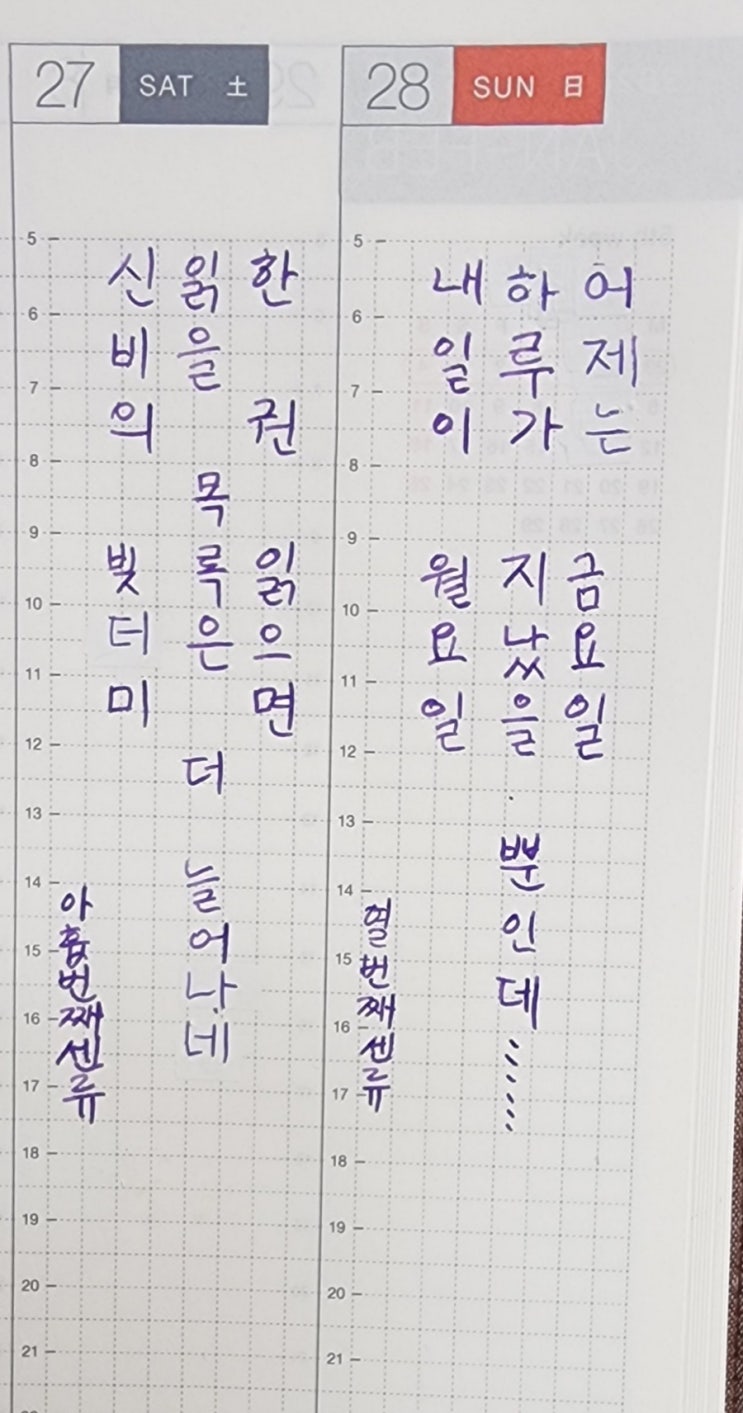 27 SAT 土
5
6
7
8
9
10
11
12
13
14
15
16
17
18
19
20
21
한 권 읽으면
읽을 목록은 더 늘어나네
신비의 빚더미
아홉번째 센류
28 SUN 日
5
6
7
8
9
10
11
12
13
14
15
16
17
18
19
20
21
어제는 금요일
하루가 지났을 뿐인데……
내일이 월요일
열번째 센류